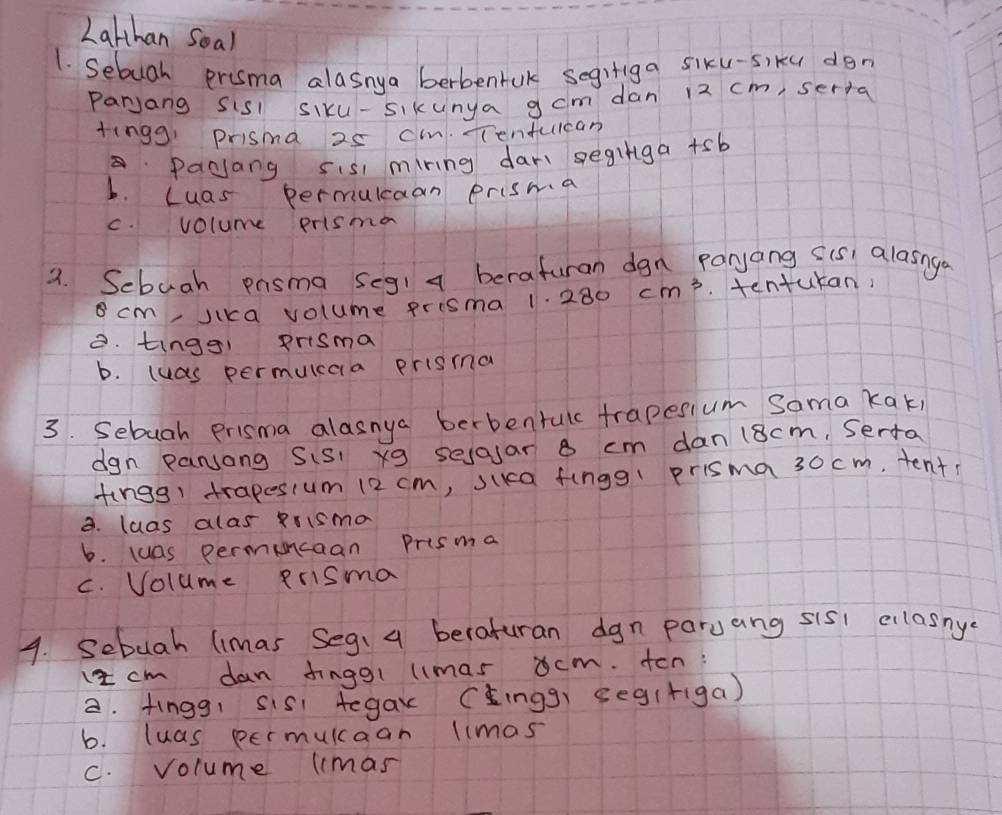 Latihan Soal
1. Sebuah prisma alasnya berbentuk segitiga siku-siku dgn
panjang sisi siku-sikunya 9 cm dan 12 cm, serta
tinggi prisma 25 cm. Tentukan
a. panjang sisi miring dari segitiga tsb
b. Luas permukaan prisma
c. volume prisma
2. Sebuah prisma segi 4 beraturan dgn panjang sisi alasnya
8 cm, jika volume prisma 1.280 cm³. tentukan:
a. tinggi prisma
b. luas permukaa prisma
3. Sebuah prisma alasnya berbentuk trapesium sama kaki
dgn panjang sisi yg sejajar 8 cm dan 18cm, serta
tinggi trapesium 12 cm, jika tinggi prisma 30 cm. tent:
a. luas alas prisma
b. luas permukaan prisma
c. Volume prisma
4. Sebuah limas segi 4 beraturan dgn panjang sisi alasnya
12 cm dan tinggi limas 8cm. ten:
a. tinggi sisi tegak (tinggi segitiga)
b. luas permukaan limas
c. volume limas